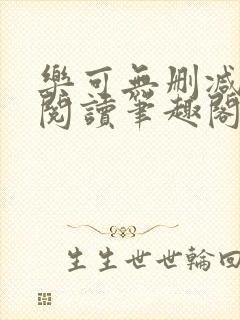 樂可無刪減
閱讀筆趣閣
生生世世輪回